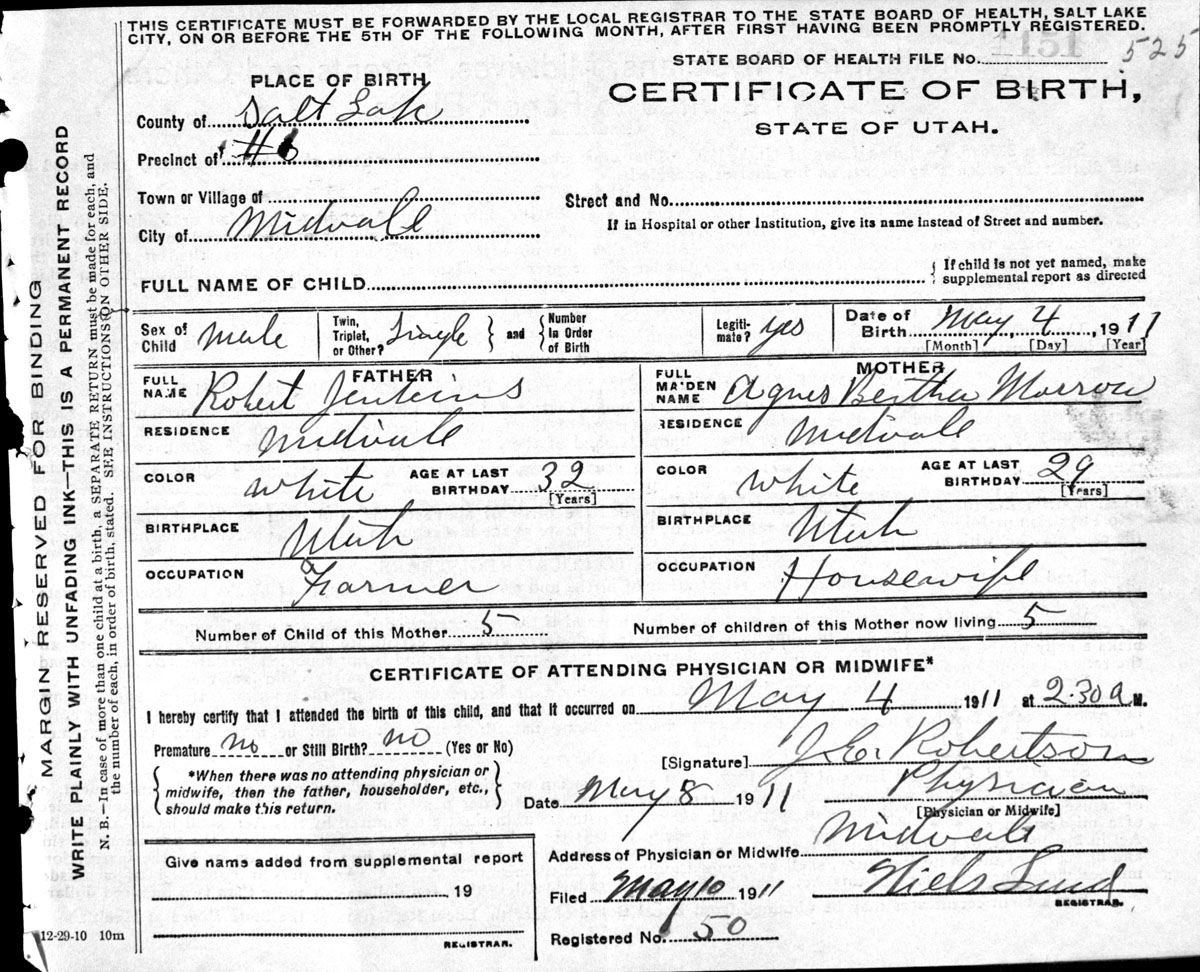 THIS CERTIFICATE MUST BE FORWARDED BY THE LOCAL REGISTRAR TO THE STATE BOARD OF HEALTH, SALT LAKE
CITY, ON OR BEFORE THE 5TH OF THE FOLLOWING MONTH, AFTER FIRST HAVING BEEN PROMPTLY REGISTERED.
STATE BOARD OF HEALTH FILE No. 525
PLACE OF BIRTH
CERTIFICATE OF BIRTH,
STATE OF UTAH.
County of Salt Lake
Precinct of #6
Town or Village of
Street and No.
City of Midvale
If in Hospital or other Institution, give its name instead of Street and number.
FULL NAME OF CHILD
If child is not yet named, make
supplemental report as directed
Sex of Child Male
Twin, Triplet, or Other? Single and Number In Order of Birth
Legiti- mate? yes
Date of Birth May 4, 1911
[Month] [Day] [Year]
FATHER
FULL NAME Robert Jenkins
RESIDENCE Midvale
COLOR White AGE AT LAST BIRTHDAY 32
[Years]
BIRTHPLACE Utah
OCCUPATION Farmer
MOTHER
FULL MAIDEN NAME Agnes Bertha Morrow
RESIDENCE Midvale
COLOR White AGE AT LAST BIRTHDAY 29
[Years]
BIRTHPLACE Utah
OCCUPATION Housewife
Number of Child of this Mother 5
Number of children of this Mother now living 5
CERTIFICATE OF ATTENDING PHYSICIAN OR MIDWIFE*
I hereby certify that I attended the birth of this child, and that it occurred on May 4 1911 at 2.30 a M.
Premature no or Still Birth? no (Yes or No)
*When there was no attending physician or
midwife, then the father, householder, etc.,
should make this return.
[Signature] J.E. Robertson
Physician
[Physician or Midwife]
Date May 8 1911
Address of Physician or Midwife Midvale
Give name added from supplemental report
19
REGISTRAR.
Filed May 10 1911 Niels Lind
REGISTRAR.
Registered No. 50
12-29-10 10m
MARGIN RESERVED FOR BINDING
WRITE PLAINLY WITH UNFADING INK—THIS IS A PERMANENT RECORD
N. B.—In case of more than one child at a birth, a SEPARATE RETURN must be made for each, and
the number of each, in order of birth, stated. SEE INSTRUCTIONS ON OTHER SIDE.